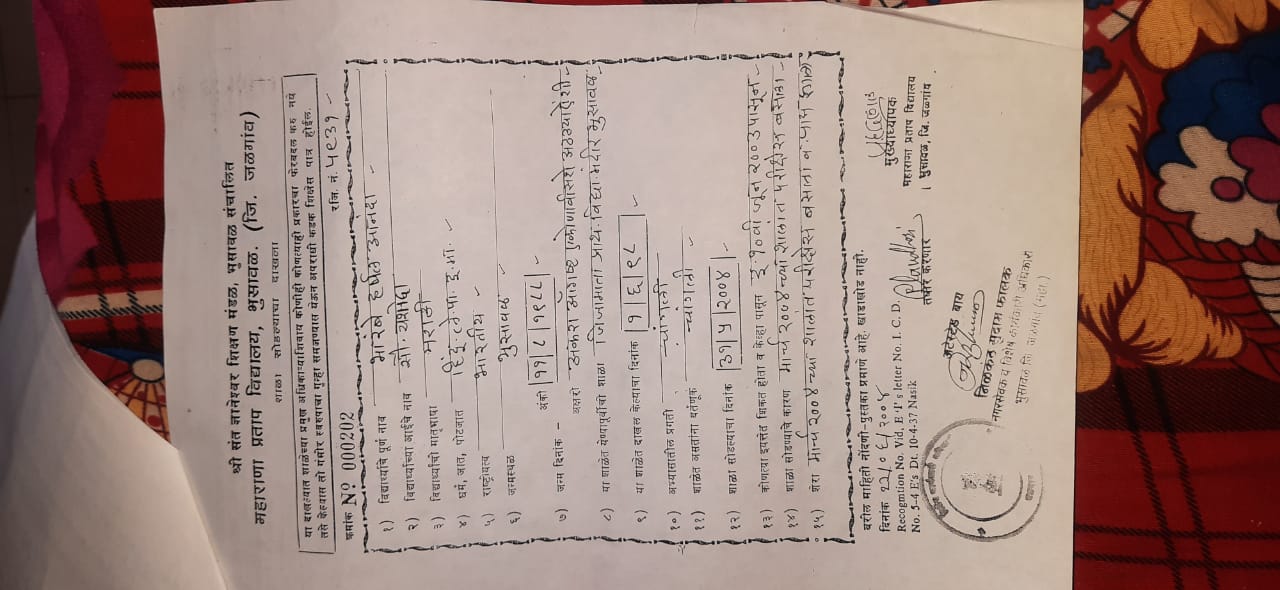 श्री संत ज्ञानेश्वर शिक्षण मंडळ, भुसावळ संचालित
महाराणा प्रताप विद्यालय, भुसावळ. (जि. जळगांव)
शाळा सोडल्याचा दाखला
या दाखल्यात शाळेच्या प्रमुख अधिकाऱ्याशिवाय कोणीही कोणत्याही प्रकारचा फेरबदल करू नये
तसे केल्यास तो गंभीर स्वरूपाचा गुन्हा समजण्यात येऊन अपराधी कडक शिक्षेस पात्र होईल.
क्रमांक Nº 000202 रजि. नं. ५९३१ -
१) विद्यार्थ्याचे पूर्ण नाव भारंबे हर्षल आनंदा -
२) विद्यार्थ्याच्या आईचे नाव सौ. यशोदा
३) विद्यार्थ्याची मातृभाषा मराठी
४) धर्म, जात, पोटजात हिंदू. (ले. पा. इ. मा. -
५) राष्ट्रीयत्व भारतीय -
६) जन्मस्थळ भुसावळ -
७) जन्म दिनांक - अंकी ११ / ८ / १९८८ -
अक्षरी अकरा ऑगष्ट एकोणावीसशे अठ्ठ्याऐंशी -
८) या शाळेत येण्यापूर्वीची शाळा जिजामाता प्राथ. विद्या मंदीर भुसावळ
९) या शाळेत दाखल केल्याचा दिनांक १ / ६ / ९८ -
१०) अभ्यासातील प्रगती चांगली
११) शाळेत असतांना वर्तणूक चांगली -
१२) शाळा सोडल्याचा दिनांक ३१ / ५ / २००४ -
१३) कोणत्या इयत्तेत शिकत होता व केव्हा पासून इ. १० वी जून २००३ पासून -
१४) शाळा सोडण्याचे कारण मार्च २००४ च्या शालांत परीक्षेस बसला -
१५) शेरा मार्च २००४ च्या शालांत परीक्षेस बसला व पास झाला
वरील माहिती नोंदणी-पुस्तका प्रमाणे आहे. खाडाखोड नाही.
दिनांक २२/०६/२००४
Recognition No. Vid. E. I's letter No. I. C. D.
No. S-4 E's Dt. 10-4-37 Nasik
तयार करणार
मुख्याध्यापक
महाराणा प्रताप विद्यालय
भुसावळ, जि. जळगांव.
अटेस्टेड बाय
नगरसेवक व विशेष कार्यकारी अधिकारी
भुसावळ जि. जळगाव (महा.)